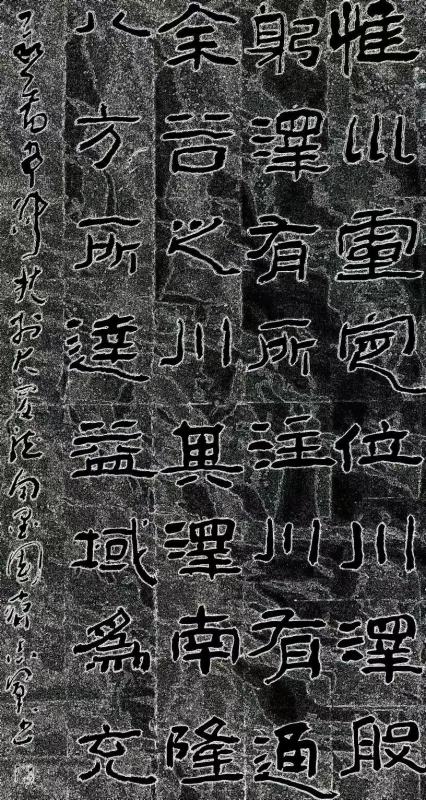 惟巛靈定位川澤股
躬澤有所注川有通
余谷之川其澤南隆
八方所達益域為充